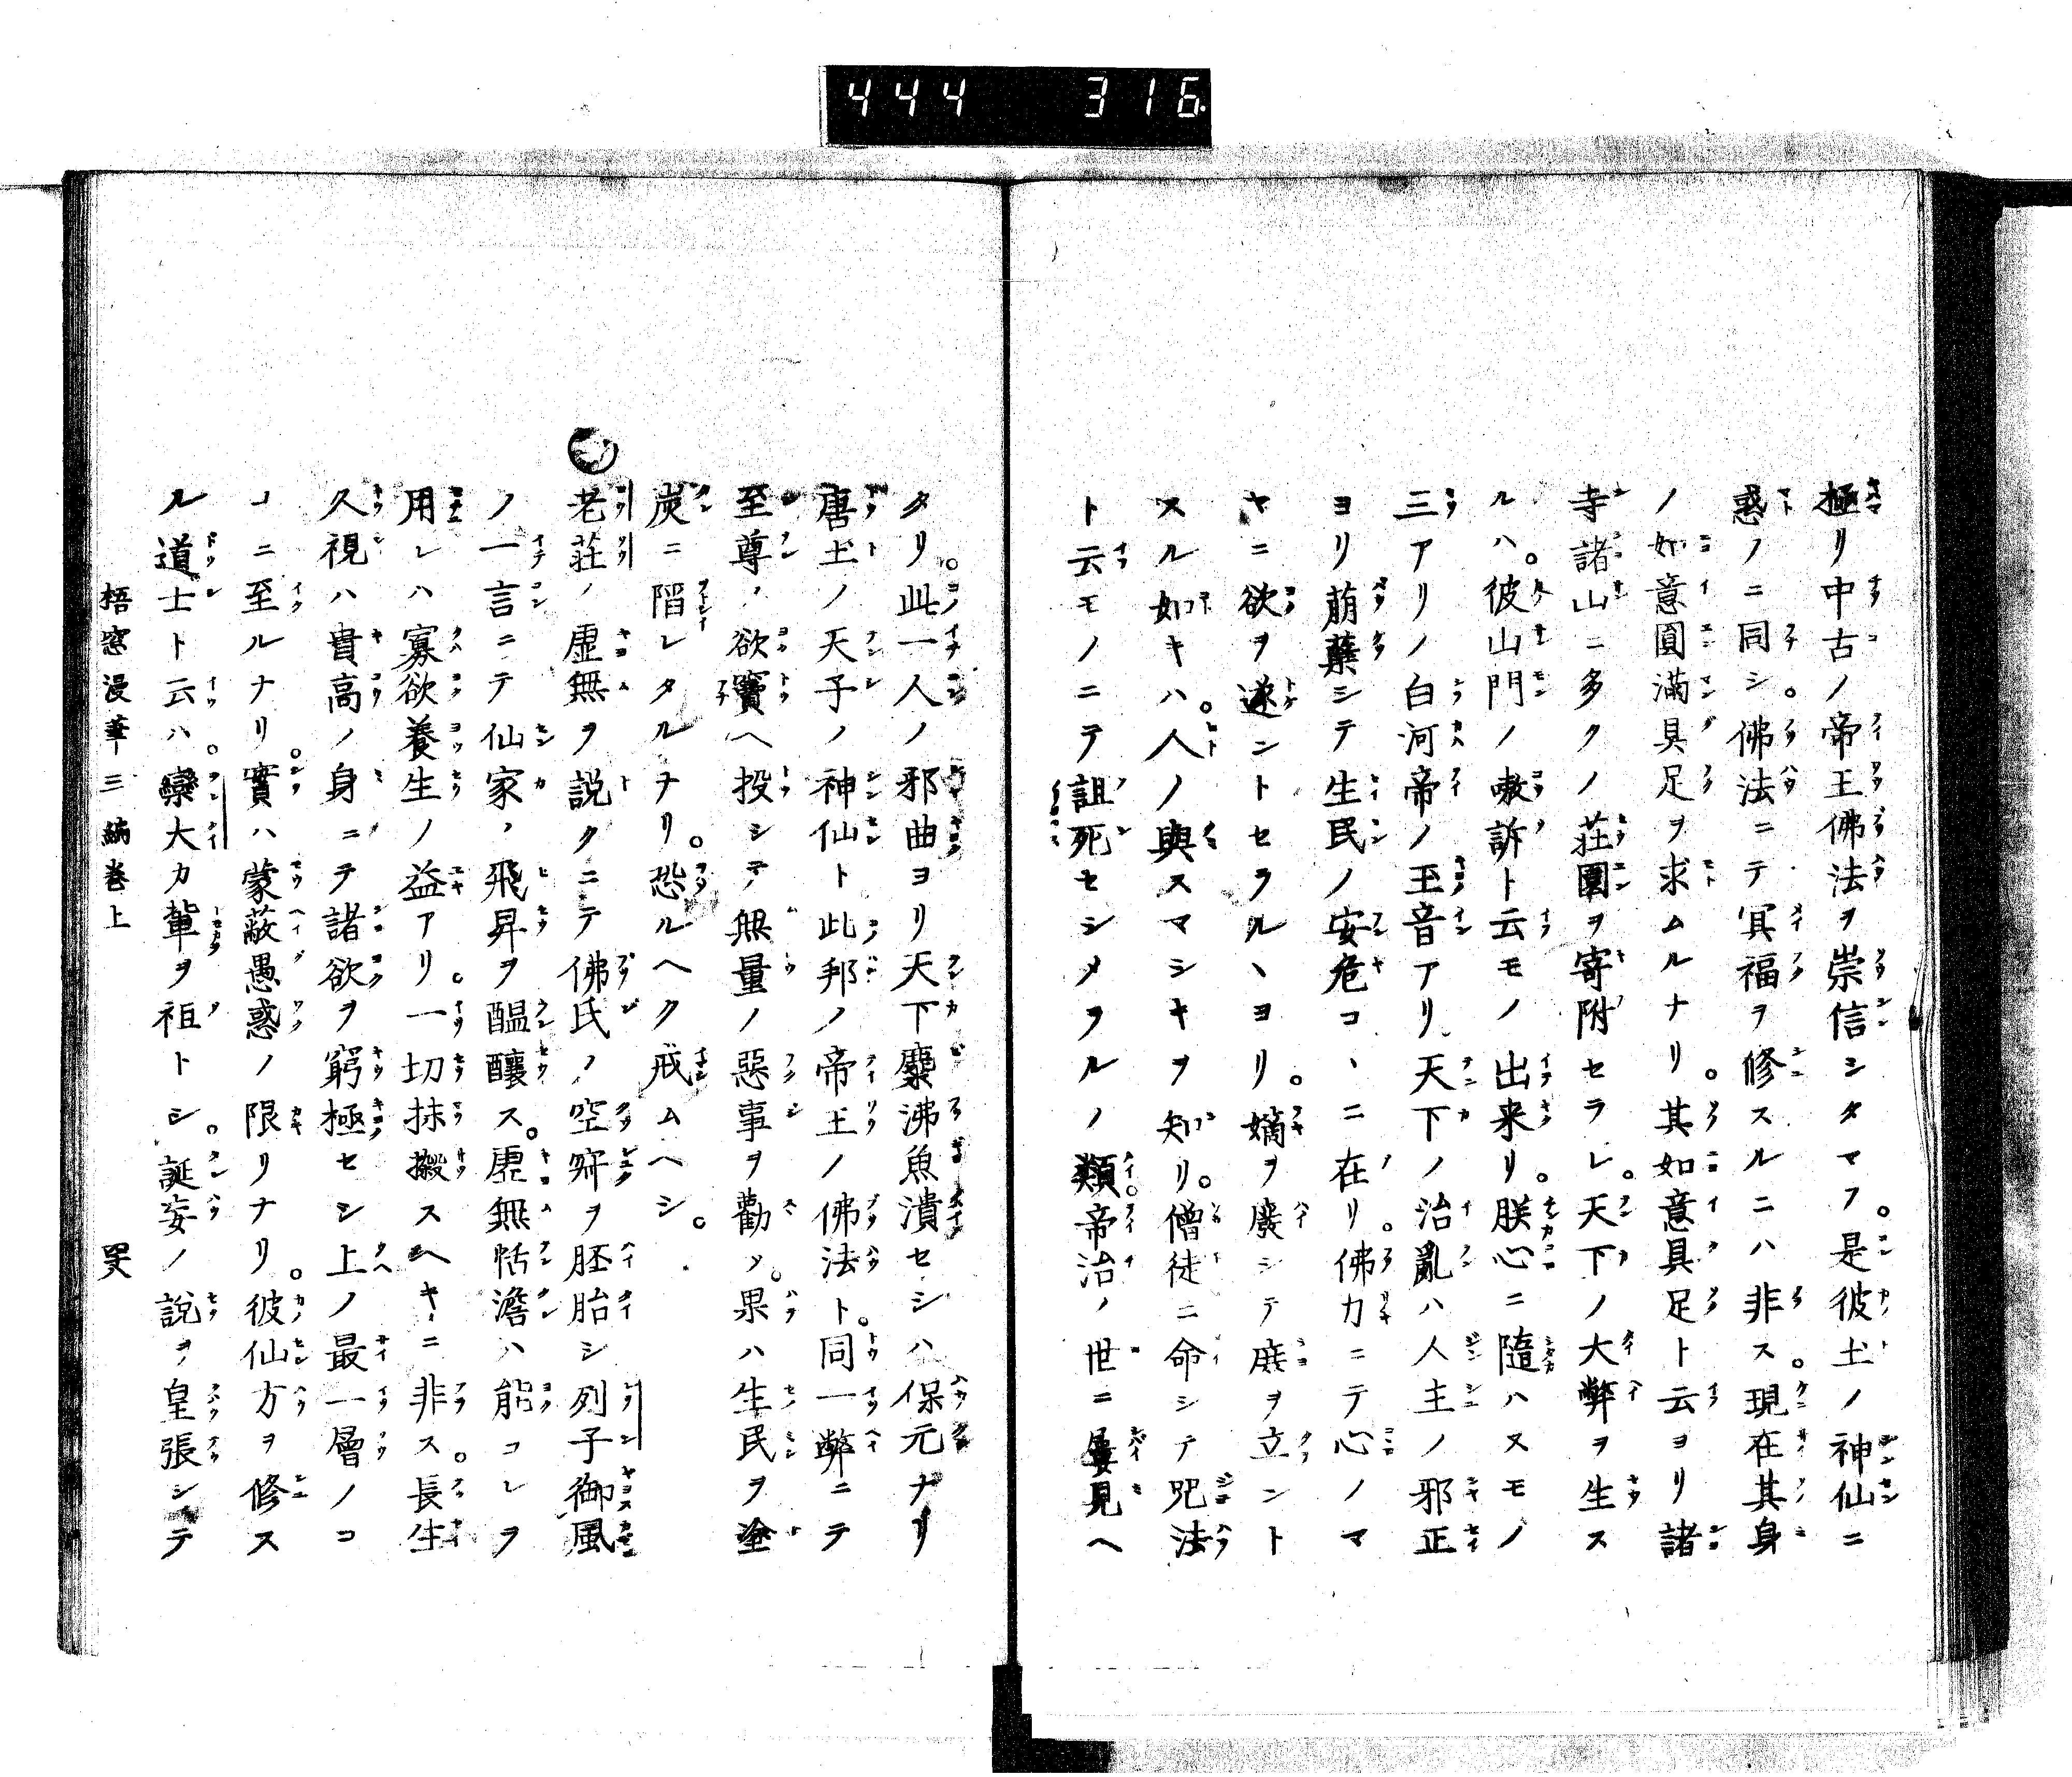 444 316
極リ中古ノ帝王佛法ヲ崇信シタマフ。是彼土ノ神仙ニ
惑ノニ同シ。佛法ニテ冥福ヲ修スルニハ非ス。現在其身
ノ如意圓滿具足ヲ求ムルナリ。其如意具足ト云ヨリ諸
寺諸山ニ多クノ莊園ヲ寄附セラレ。天下ノ大弊ヲ生ス
ルハ。彼山門ノ嗷訴ト云モノ出来リ。朕心ニ隨ハスモノ
三アリノ白河帝ノ玉音アリ天下ノ治亂ハ人主ノ邪正
ヨリ萠蘖シテ生民ノ安危コヽニ在リ。佛力ニテ心ノマ
ヤニ欲ヲ遂ントセラルヽヨリ。嫡ヲ廢シテ庶ヲ立ント
スル如キハ。人ノ與スマシキヲ知リ。僧徒ニ命シテ咒法
ト云モノニテ詛死セシメラルノ類。帝治ノ世ニ屢見ヘ
タリ。此一人ノ邪曲ヨリ天下麋沸魚潰セシハ保元ナリ
唐土ノ天子ノ神仙ト此邦ノ帝王ノ佛法ト。同一弊ニテ
至尊ノ欲竇ヘ投シテ無量ノ惡事ヲ勸ム。果ハ生民ヲ塗
炭ニ陷レタルナリ。恐ルヘク戒ムヘシ。
老莊ノ虛無ヲ説クニテ佛氏ノ空寂ヲ胚胎シ列子御風
ノ一言ニテ仙家ノ飛昇ヲ醞釀ス。虛無恬澹ハ能コレヲ
用レハ寡欲養生ノ益アリ。一切抹摋スヘキニ非ス。長生
久視ハ貴高ノ身ニテ諸欲ヲ窮極セシ上ノ最一層ノコ
コニ至ルナリ。實ハ蒙蔽愚惑ノ限リナリ。彼仙方ヲ修ス
ル道士ト云ハ。欒大カ輩ヲ祖トシ。誕妄ノ說ヲ皇張シテ
梧窓漫筆三編卷上